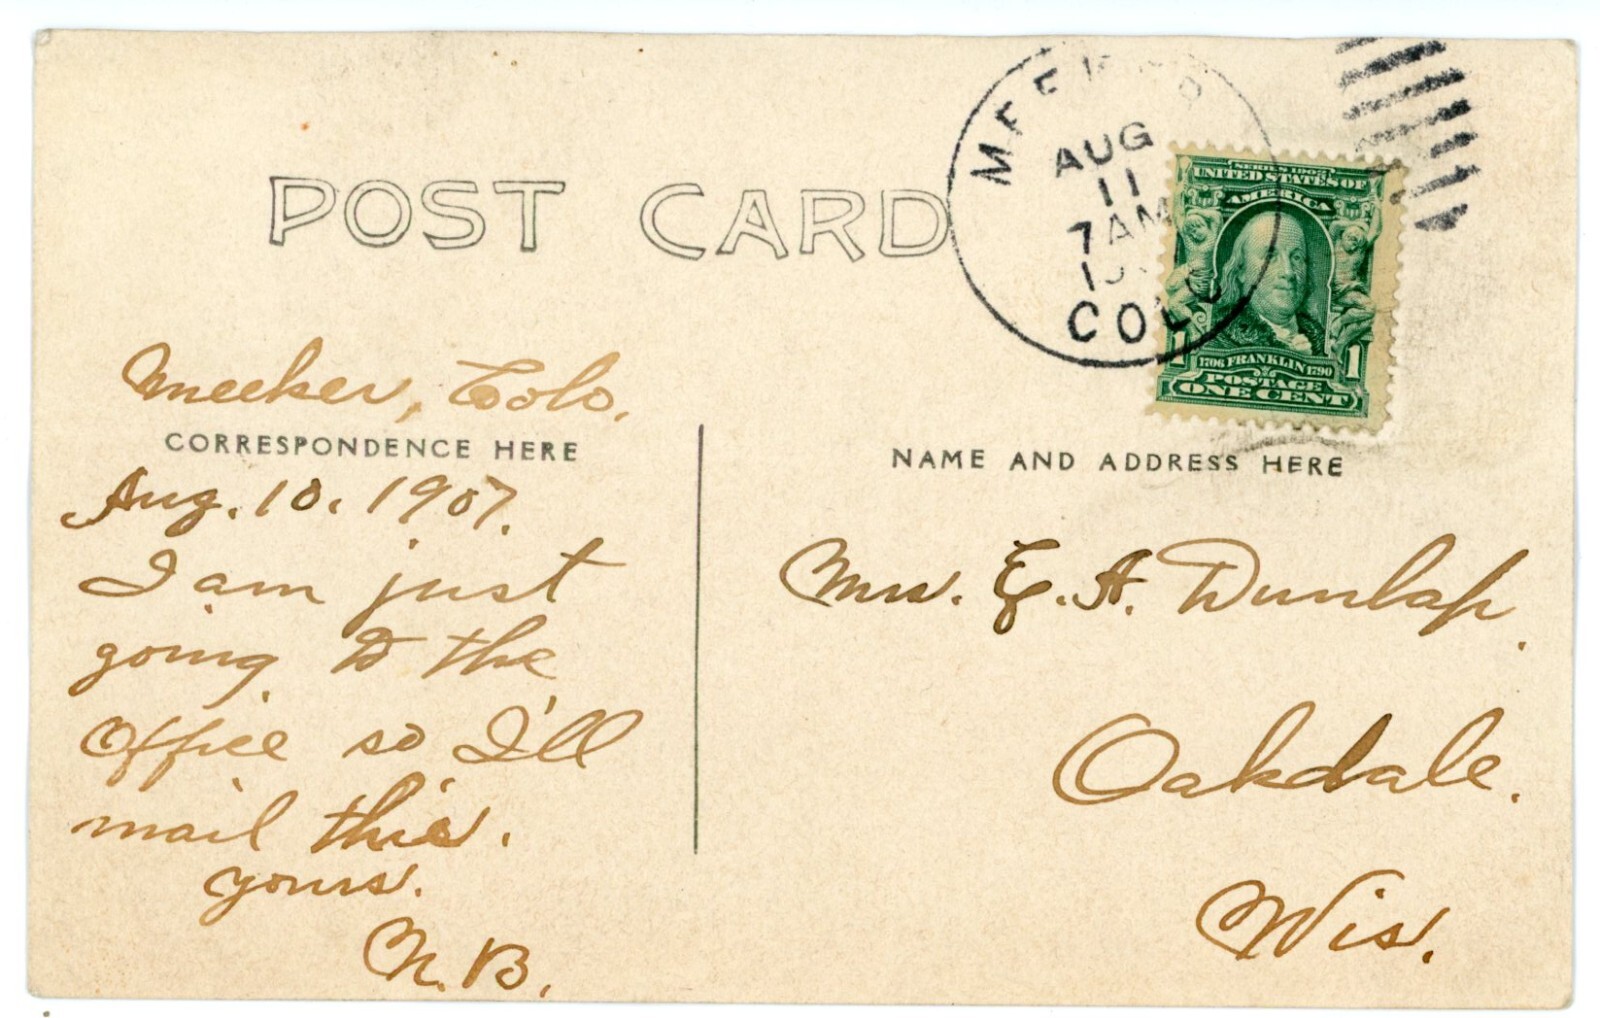 POST CARD
MEEKER
AUG
11
7 AM
COLO
SERIES 1902
UNITED STATES OF
AMERICA
1 1
1706 FRANKLIN 1790
POSTAGE
ONE CENT
Meeker, Colo.
CORRESPONDENCE HERE
Aug. 10. 1907.
I am just
going to the
Office so I'll
mail this.
yours.
N. B.
NAME AND ADDRESS HERE
Mrs. A. Dunlap.
Oakdale.
Wis.